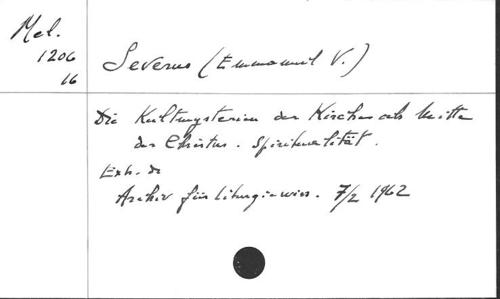 Mel.
1206
16
Severus (Emmanuel V.)
Die Kultmysterien der Kirche als Mitte
der Christus. Spiritualität.
Extr. de
Archiv für Liturgiewiss. 7/2 1962